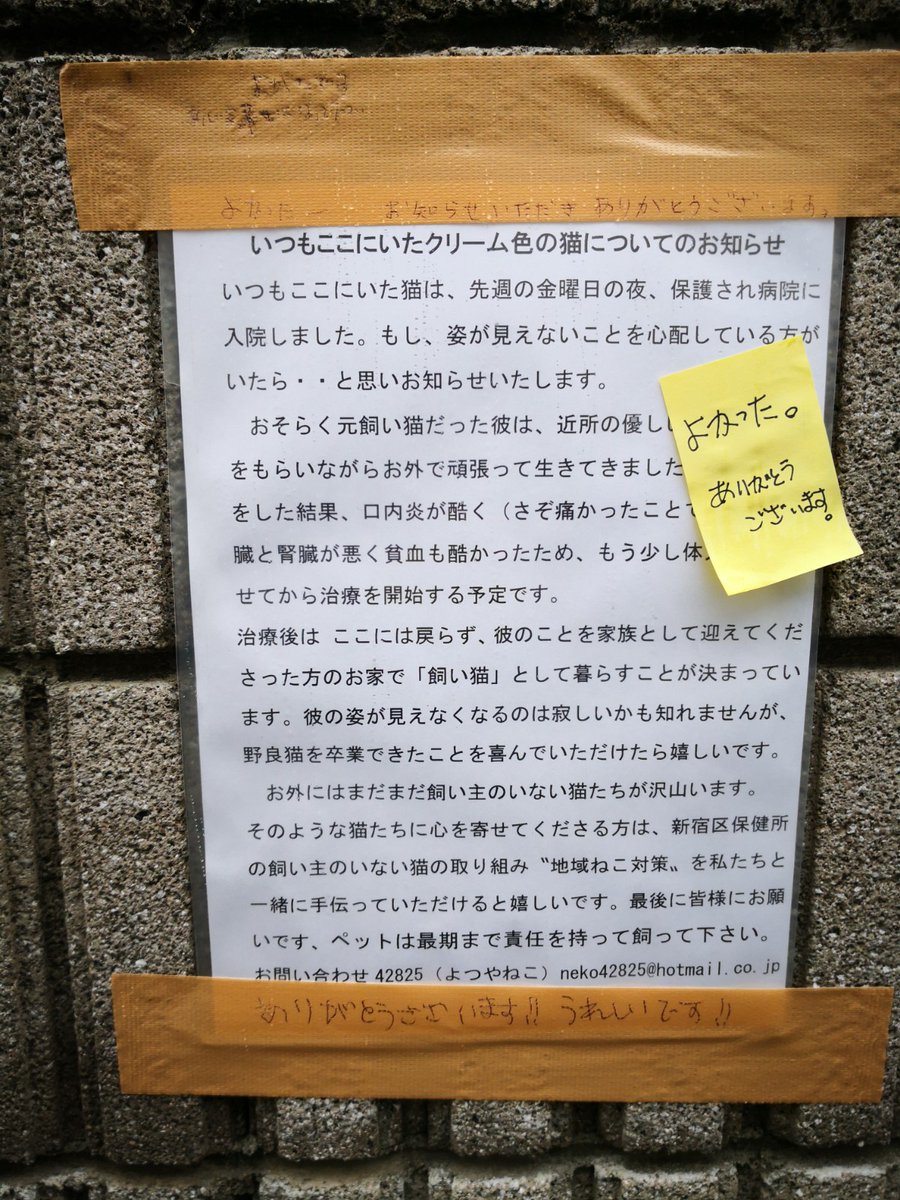 よかったー お知らせいただき ありがとうございます。
いつもここにいたクリーム色の猫についてのお知らせ
いつもここにいた猫は、先週の金曜日の夜、保護され病院に
入院しました。もし、姿が見えないことを心配している方が
いたら・・と思いお知らせいたします。
おそらく元飼い猫だった彼は、近所の優し
をもらいながらお外で頑張って生きてきました
をした結果、口内炎が酷く（さぞ痛かったことで
臓と腎臓が悪く貧血も酷かったため、もう少し体
せてから治療を開始する予定です。
治療後は ここには戻らず、彼のことを家族として迎えてくだ
さった方のお家で「飼い猫」として暮らすことが決まってい
ます。彼の姿が見えなくなるのは寂しいかも知れませんが、
野良猫を卒業できたことを喜んでいただけたら嬉しいです。
お外にはまだまだ飼い主のいない猫たちが沢山います。
そのような猫たちに心を寄せてくださる方は、新宿区保健所
の飼い主のいない猫の取り組み〝地域ねこ対策〟を私たちと
一緒に手伝っていただけると嬉しいです。最後に皆様にお願
いです、ペットは最期まで責任を持って飼って下さい。
お問い合わせ 42825（よつやねこ）neko42825@hotmail.co.jp
よかった。
ありがとう
ございます。
ありがとうございます!! うれしいです!!